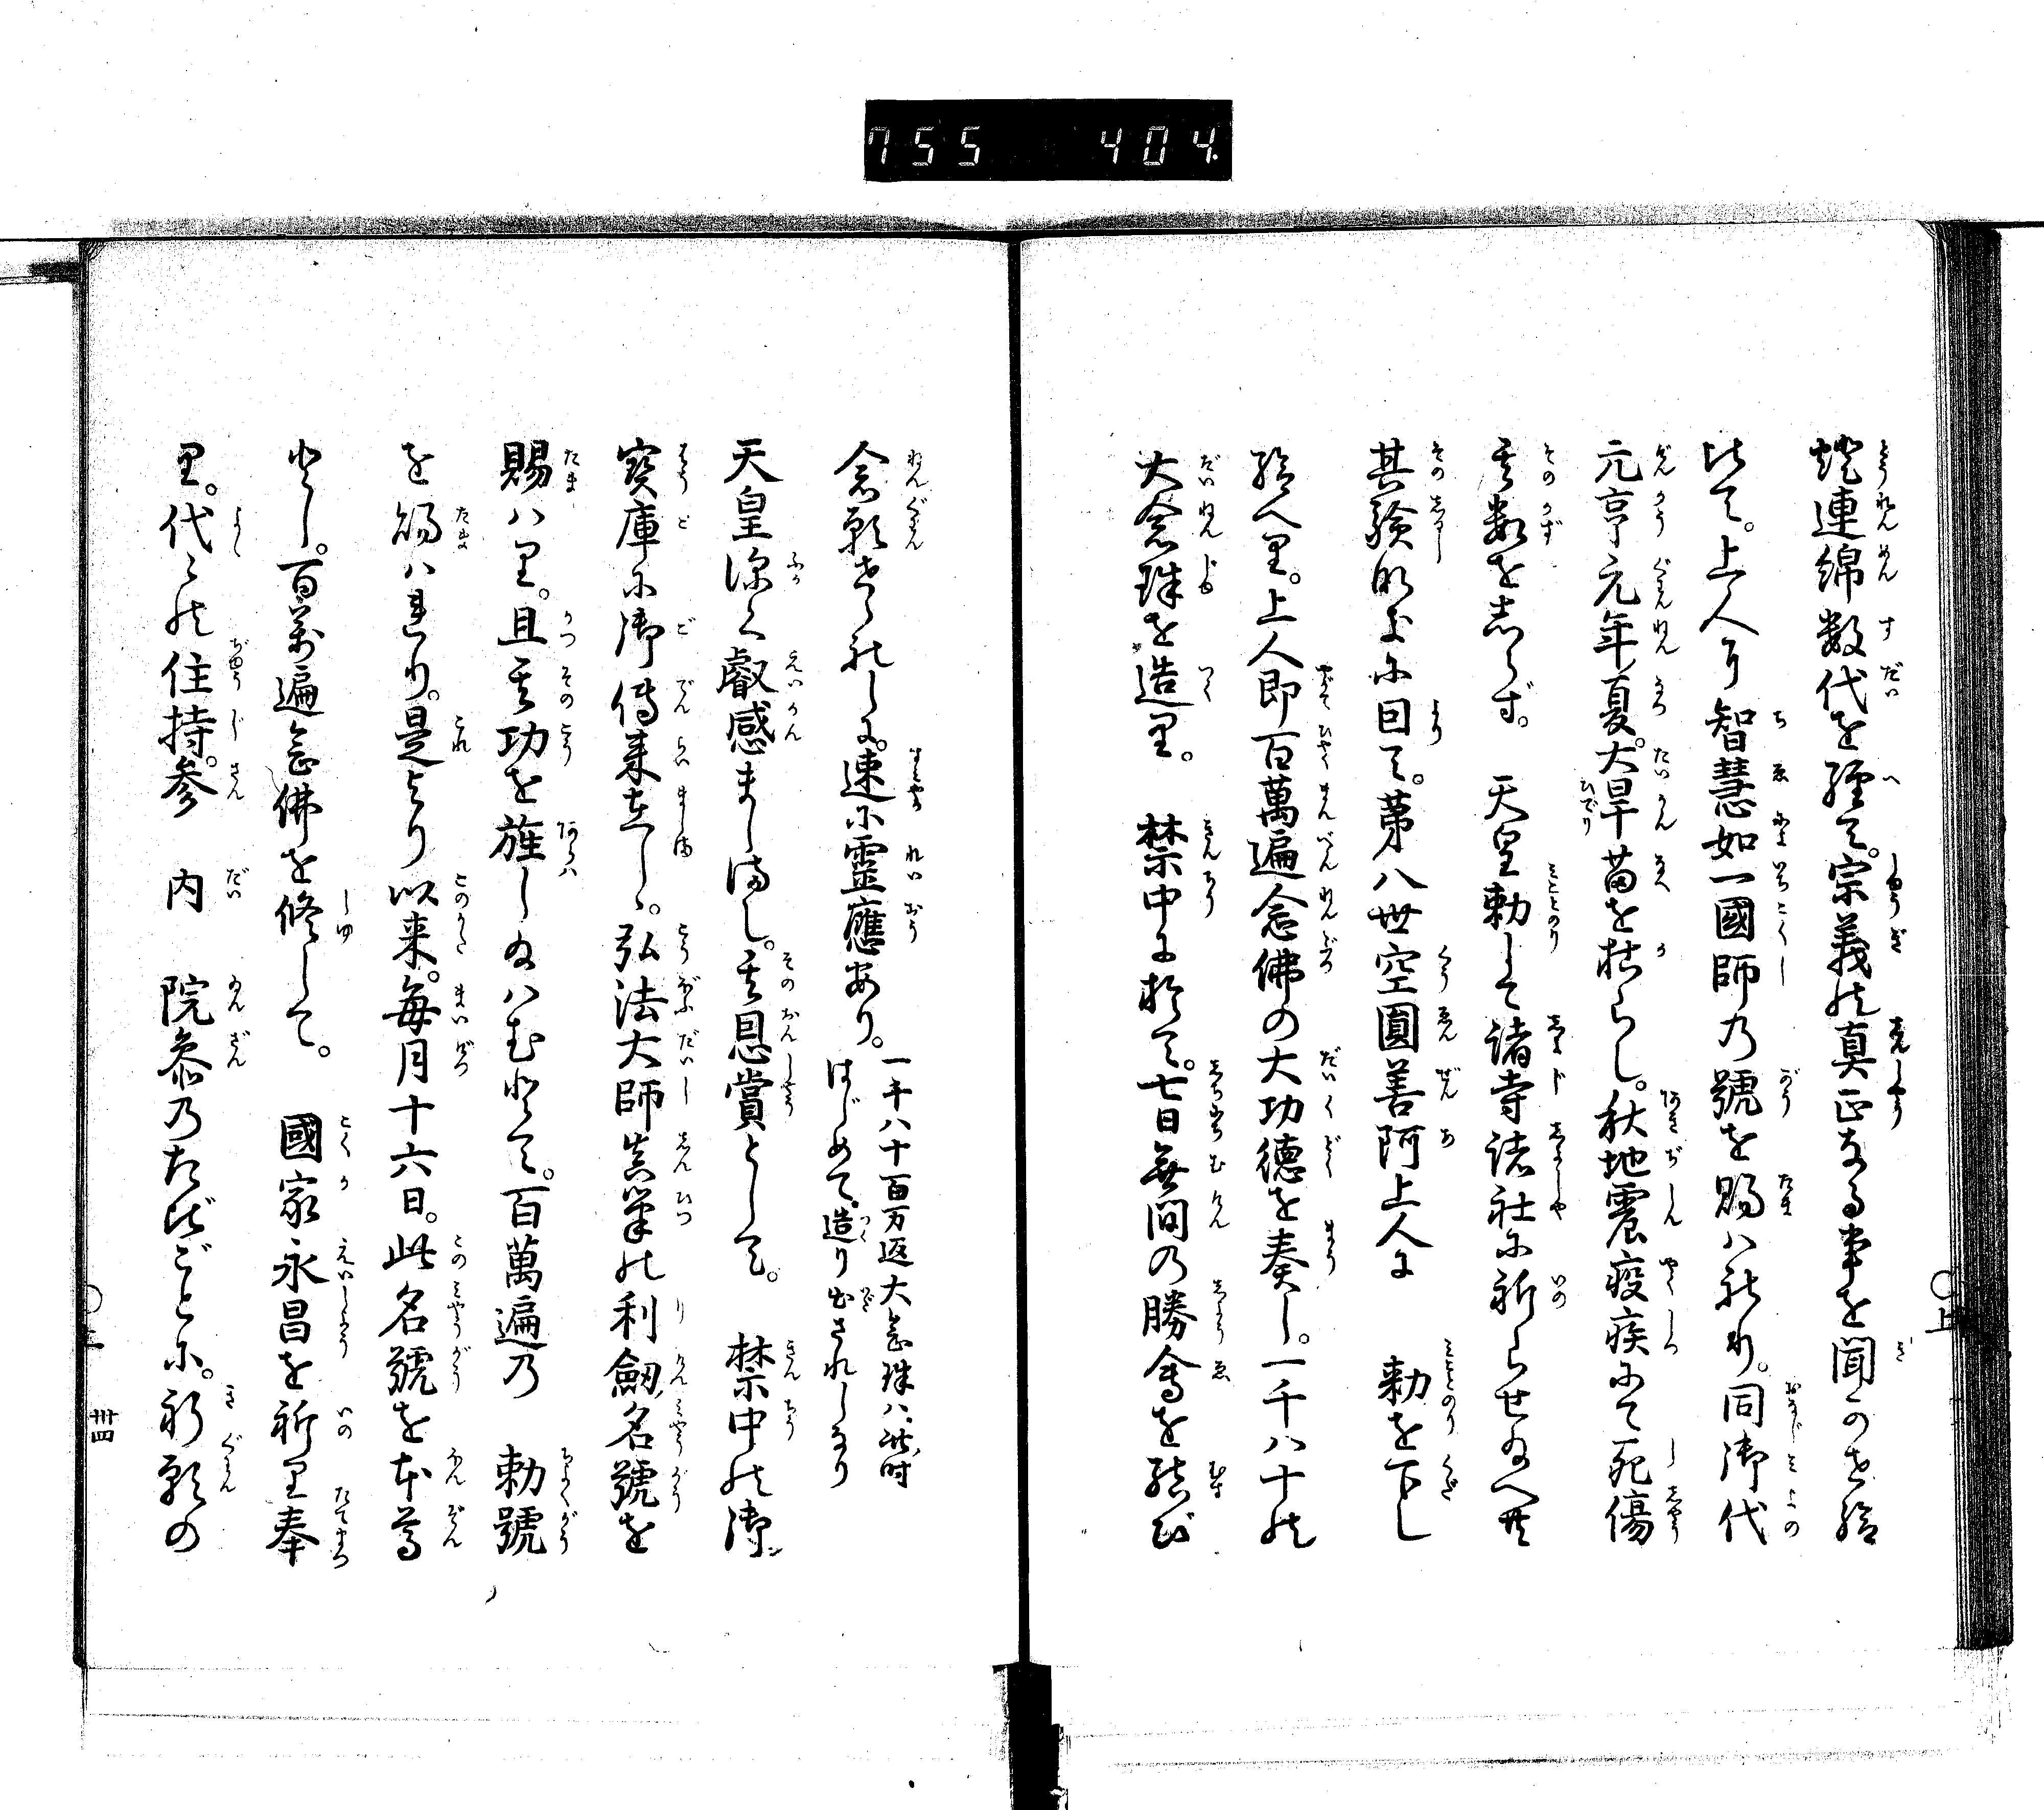 755 404
燈連綿数代を経て。宗義の真正なる事を聞かせ給
ひて。上人に智慧如一國師乃號を賜ハれり。同御代
元亨元年夏。大旱苗を枯らし。秋地震疫疾にて死傷
其数を志らず。 天皇勅して諸寺諸社に祈らせ給へ共
其験なきに因て。第八世空圓善阿上人に 勅を下し
給へり。上人即百萬遍念佛の大功徳を奏し。一千八十の
大念珠を造り。 禁中に於て。七日無間の勝會を結び
念願せられしに。速に靈應あり。
一千八十百万返大念珠ハ、此時
はじめて造り出されしなり
天皇深く叡感ましまし。其恩賞として。 禁中の御
寳庫に御傳来在し。弘法大師真筆の利劔名號を
賜ハり。且其功を旌し給ハむとて。百萬遍乃 勅號
を賜ハれり。是より以来。毎月十六日。此名號を本尊
とし。百萬遍念佛を修して。 國家永昌を祈り奉
り。代々の住持。参 内 院参乃たびごとに。祈願の
上
丗四